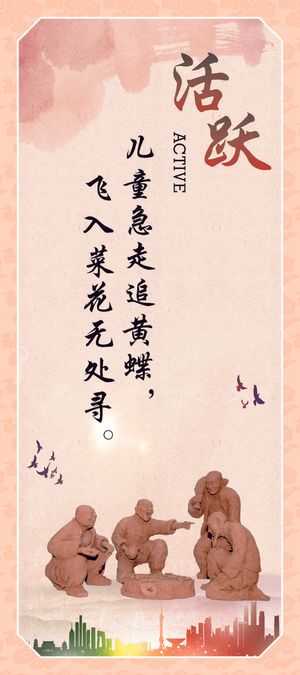 活跃
ACTIVE
儿童急走追黄蝶，
飞入菜花无处寻。